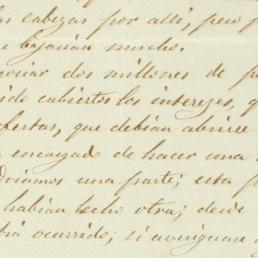 las cabezas por alli, pero p
e bajarian mucho.
ociar dos millones de p
ido cubiertos los intereses, q
ofertas, que debian abrirse
encargado de hacer una
driamos una parte; esta p
habian hecho otra; desde
brá ocurrido; si averiguase